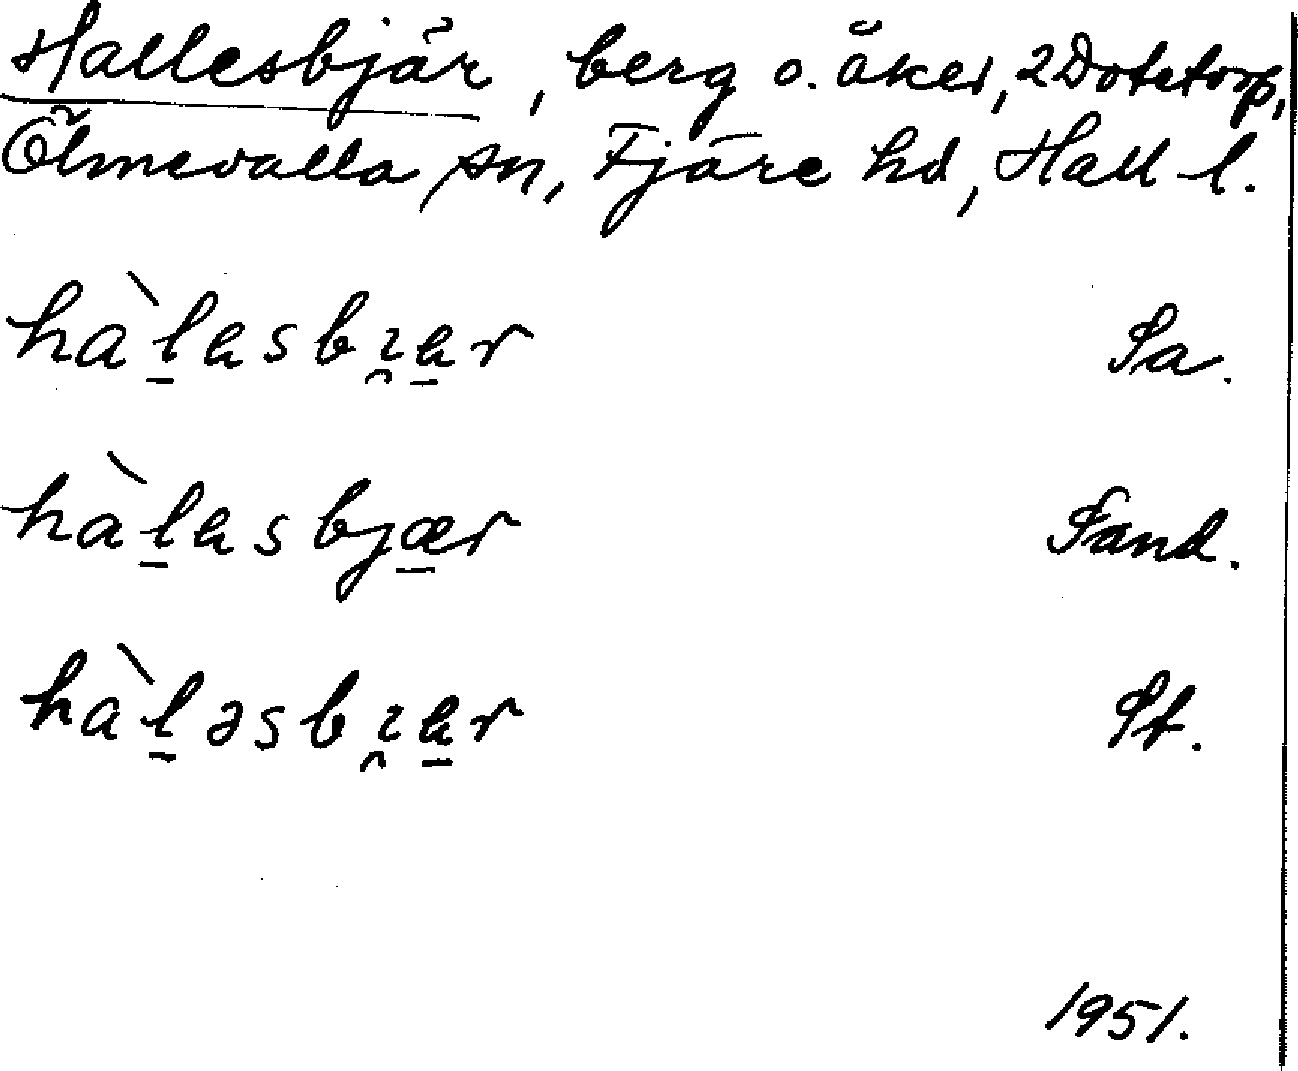 Hallesbjär, berg o. åker, 2 Dotetorp,
Ölmevalla sn, Fjäre hd, Hall l.
hàl̠esbı̯e̠r Sa.
hàl̠esbjæ̠r Sand.
hàl̠əsbı̯e̠r St.
1951.